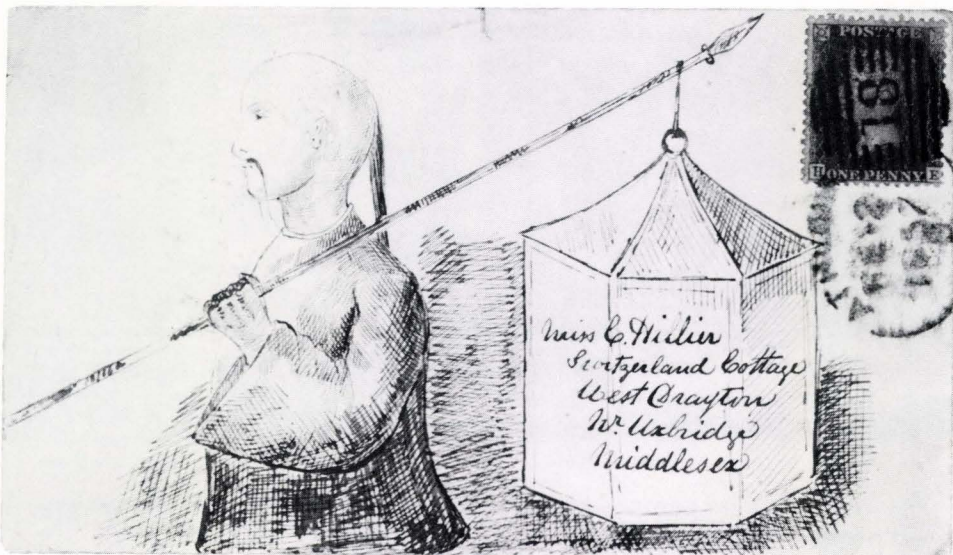 POSTAGE
18
H ONE PENNY E
Miss C. Hillier
Switzerland Cottage
West Drayton
Nr. Uxbridge
Middlesex